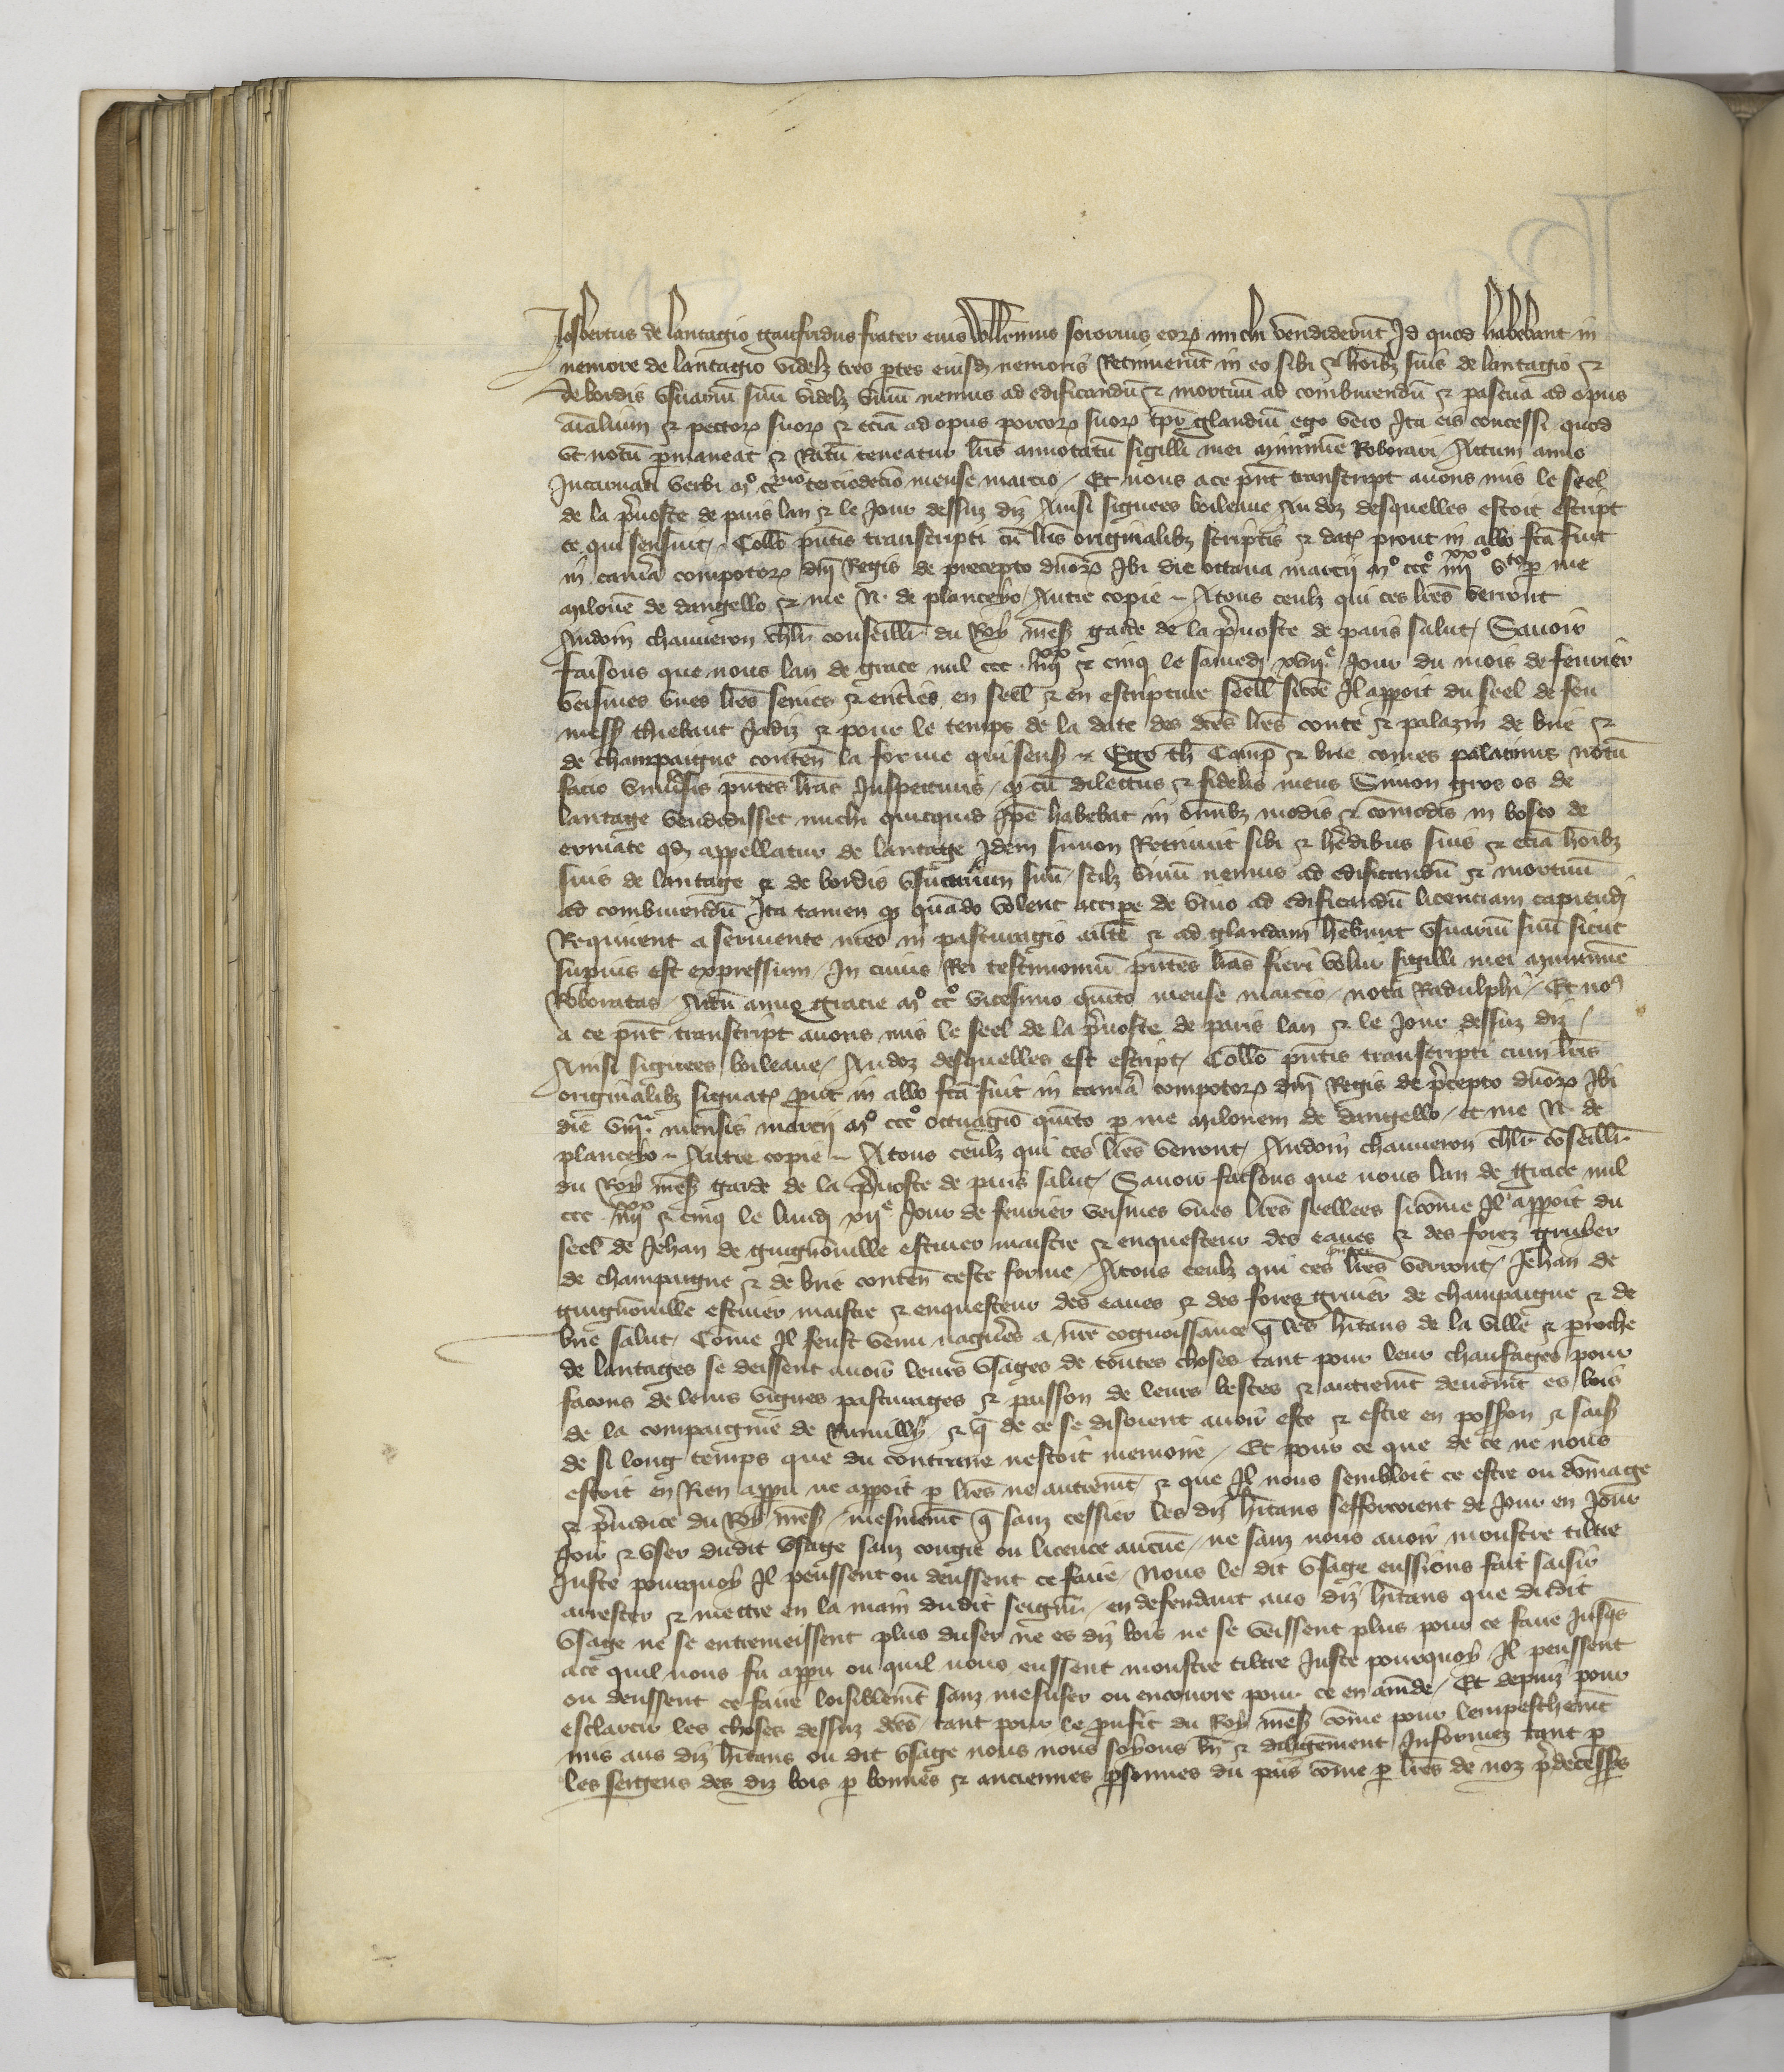 Josbertus de lantagio gaufridus frater eius Willermus sororius eorꝝ michi vendiderūt Id quod habebant in
nemore de lantagio videlꝫ tres ptes eiusdē nemoris Retinuerūt in eo sibi ⁊ hoībꝫ suis de lantagio ⁊
de bordis vsuariū suū videlꝫ viuū nemus ad edificandū ⁊ mortuū ad comburendū ⁊ pascua ad opus
aīalium ⁊ pectorꝝ suorꝝ ⁊ eciā ad opus porcorꝝ suorꝝ tpr̄ glandiū ego vero Ita eis concessi quod
vt notū pmaneat ⁊ Ratū teneatur lrīs annotatū sigilli mei munimīe Roborari / Actum anno
Incarnati verbi mº ccᵐᵒ terciodecīo mense marcio / Et nous a ce pn̄t transcript auons mis le seel
de la p̄uoste de paris lan ⁊ le Jour dessuz diz Ainsi signees boileaue Au doz desquelles estoit escript
ce qui sensuit / Collō pn̄tis transcripti cū lrīs originalibꝫ scriptis ⁊ datꝭ prout in albo fcā fuit
in camᵃa compotorꝝ dn̄i Regis de precepto dn̄orꝝ Ibi die octaua marcij mº cccº iiijˣˣº vᵗᵒ p me
milonē de dangello ⁊ me N. de plancero / Autre copie ~ A tous ceulx qui ces lr̄es verront
Audoin chauueron chlr̄ conseill̄r du Roy nr̄es garde de la p̄uoste de paris salut / Sauoir
faisons que nous lan de grace mil ccc . iiijˣˣ ⁊ cinq le samedi xvijᵉ Jour du mois de feurier
veismes vnes lr̄es senies ⁊ entrīes en seell ⁊ en escripture seell sicōe Il appoit du seel de feu
mess̄ thiebaut Jadiz ⁊ pour le temps de la date des dc̄es lr̄es conte ⁊ palazin de brie ⁊
de champaigne conten̄ la forme qui sens̄ ~ Ego th̄ Camp̄ ⁊ brie comes palatinus notū
facio vniūsis pn̄tes lrās Inspecturis / ꝙ cū dilectus ⁊ fidelis meus Simon gros os de
lantage vendidisset michi quicquid Ip̄e habebat in oīnibꝫ modis ⁊ cōmodis in bosco de
eruiate qd̄ appellatur de lantage Idem Simon Retinuit sibi ⁊ hr̄edibus suis ⁊ eciā hoībꝫ
suis de lantage ⁊ de bordis vsuarium suū / scilꝫ viuū nemus ad edificandū ⁊ mortuū
ad comburendū Ita tamen ꝙ quādo volent accipe de viuo ad edificandū licenciam capiendi
Requirent a seruiente meo in pasturagio autē ⁊ ad glandam hēbunt vsuariū suū sicut
supius est expressum / In cuius Rei testimoniū pn̄tes lrās fieri volui sigilli mei munimīe
Roboratas / Actū anno gracie mº ccº vicesimo quīto mense marcio / nota Radulphi / Et noꝰ
a ce pn̄t transcript auons mis le seel de la p̄uoste de paris lan ⁊ le Jour dessuz diz /
Ainsi signees boileaue / Au doz desquelles est escript / Collō pn̄tis transcripti cum lrīs
originalibꝫ signatꝭ put in albo fcā fuit in camᵃa compotorꝝ dn̄i Regis de p̄cepto dn̄orꝝ Ibi
die viijᵃ. mensis marcij mº cccº octuagīo quīto p me milonem de dangello / et me N. de
plancero ~ Autre copie ~ A tous ceulx qui ces lr̄es verront / Audoin chauueron chlr̄ cōseill̄r
du Roy nr̄es garde de la p̄uoste de paris salut / Sauoir faisons que nous lan de grace mil
ccc . iiijˣˣ ⁊ cinq le lundi xijᵉ Jour de feurier veismes vnes lr̄es seellees sicōme Il appoit du
seel de Jehan de guignonuille escuier maistre ⁊ enquesteur des eaues ⁊ des forez gruier
de champaigne ⁊ de brie conten̄ ceste forme / A tous ceulx qui ces lr̄es verront / Jehan de
guignonuille escuier maistre ⁊ enquesteur des eaues ⁊ des forez gruier de champaigne ⁊ de
brie salut / Cōme Il feust venu nagueres a nr̄e cognoissance q̄ les hītans de la ville ⁊ proche
de lantages se deissent auoir leurs vsages de toutes choses tant pour leur chaufages pour
facons de leurs vignes pasturages ⁊ passon de leurs bestes ⁊ autremt̄ deuemt̄ es bois
de la compaignie de Rumilly ⁊ q̄ de ce se disoient auoir este ⁊ estre en poss̄on ⁊ sais̄
de si long temps que du contraire nestoit memoire / Et pour ce que de ce ne nous
estoit en Rien appu ne appoit p lr̄es ne autremt̄ / ⁊ que Il nous sembloit ce estre ou dōmage
⁊ p̄iudice du Roy nr̄es / mesmemt̄ q̄ sanz cesser les diz hītans sefforcoient de Jour en Jour
Joir ⁊ vser dudit vsage sanz congie ou licence aucūe / ne sanz nous auoir monstre tiltre
Juste pourquoy Il peussent ou deussent ce faire / Nous le dit vsage eussions fait saisir
arrester ⁊ mettre en la main dudit seignr̄ / en defendant aus diz hītans que dudit
vsage ne se entremeissent plus duser ne es diz bois ne se veissent plus pour ce faire Jusqs̄
a ce quil nous fu appu ou quil nous eussent monstre tiltre Juste pourquoy Il peussent
ou deussent ce faire loisiblemt̄ sanz mesuser ou encourre pour ce en amēde / Et depuiz pour
esclarcir les choses dessuz dc̄es / tant pour le pufit du Roy nr̄es cōme pour lempeschemt̄
mis aus diz hītans ou dit vsage nous nous soyons bn̄ ⁊ diligēment Informez tant p
les sergens des diz bois p bonnes ⁊ anciennes psonnes du pais cōme p lr̄es de noz p̄decess̄rs